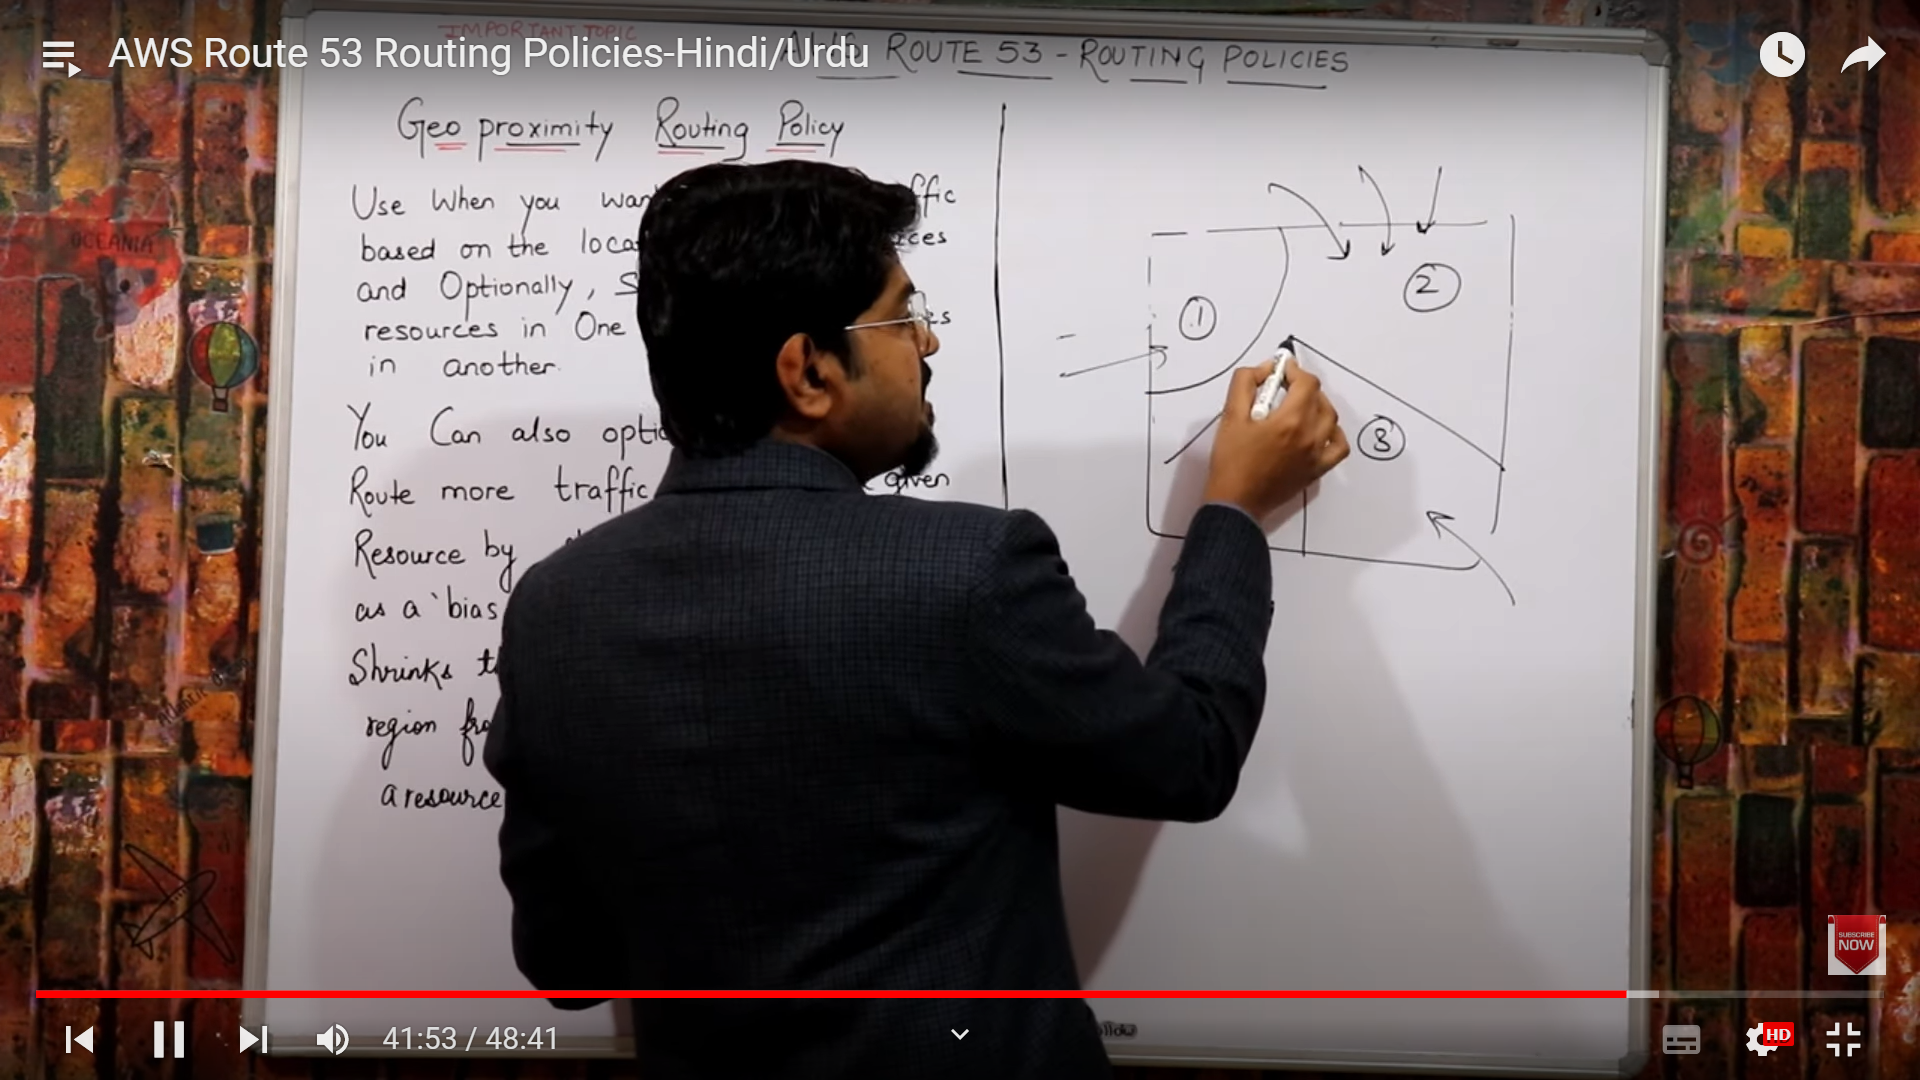 IMPORTANT TOPIC
AWS Route 53 Routing Policies-Hindi/Urdu
AWS ROUTE 53 - ROUTING POLICIES
Geo proximity Routing Policy
Use When you
based on the
and Optionally,
resources in One
in another.
You Can also
Route more traffic given
Resource by
as a 'bias
Shrinks
region
a resource
1
2
3
OCEANIA
SUBSCRIBE
NOW
41:53 / 48:41
HD